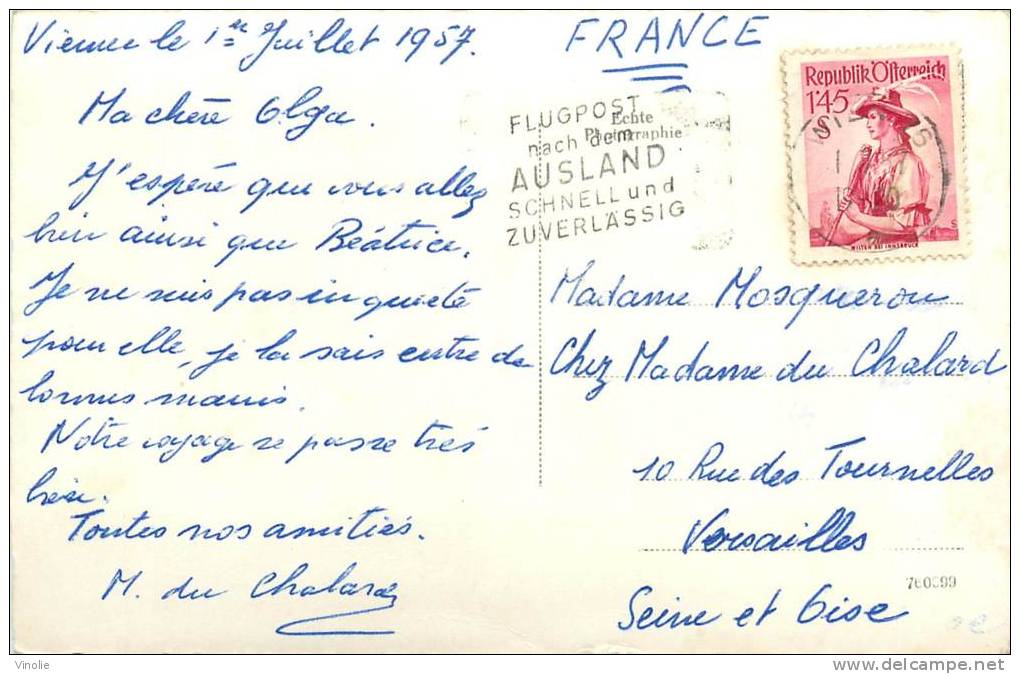 Vienne le 1er Juillet 1957.
Ma chère Olga.
J'espère que vous allez
bien ainsi que Béatrice.
Je ne suis pas inquiète
pour elle, je la sais entre de
bonnes mains.
Notre voyage se passe très
bien.
Toutes nos amitiés.
M. du Chalard
FRANCE
FLUGPOST
nach dem
AUSLAND
SCHNELL und
ZUVERLÄSSIG
Echte
Photographie
Republik Österreich
1'45
S
WILTEN BEI INNSBRUCK
Madame Mosqueron
Chez Madame du Chalard
10 Rue des Tournelles
Versailles
Seine et Oise
760399
Vinolie
www.delcampe.net